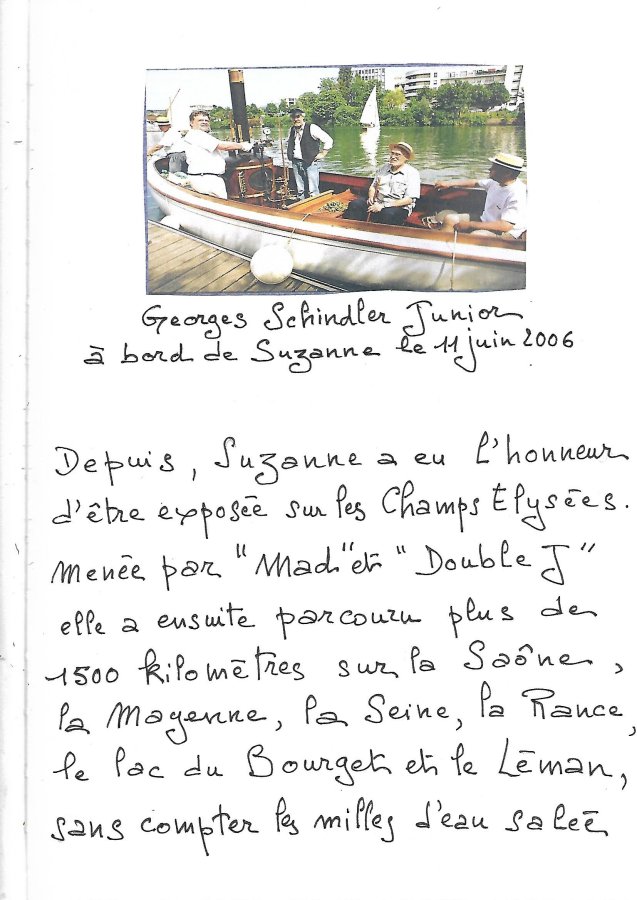 Georges Schindler Junior
à bord de Suzanne le 11 juin 2006
Depuis, Suzanne a eu l'honneur
d'être exposée sur les Champs Elysées.
Menée par "Mad" et "Double J"
elle a ensuite parcouru plus de
1500 kilomètres sur la Saône,
la Mayenne, la Seine, la Rance,
le lac du Bourget et le Léman,
sans compter les milles d'eau salée